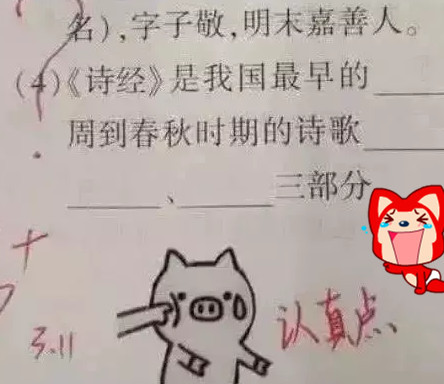 名),字子敬,明末嘉善人。
(4)《诗经》是我国最早的____
周到春秋时期的诗歌____
____、____三部分
3.11
认真点